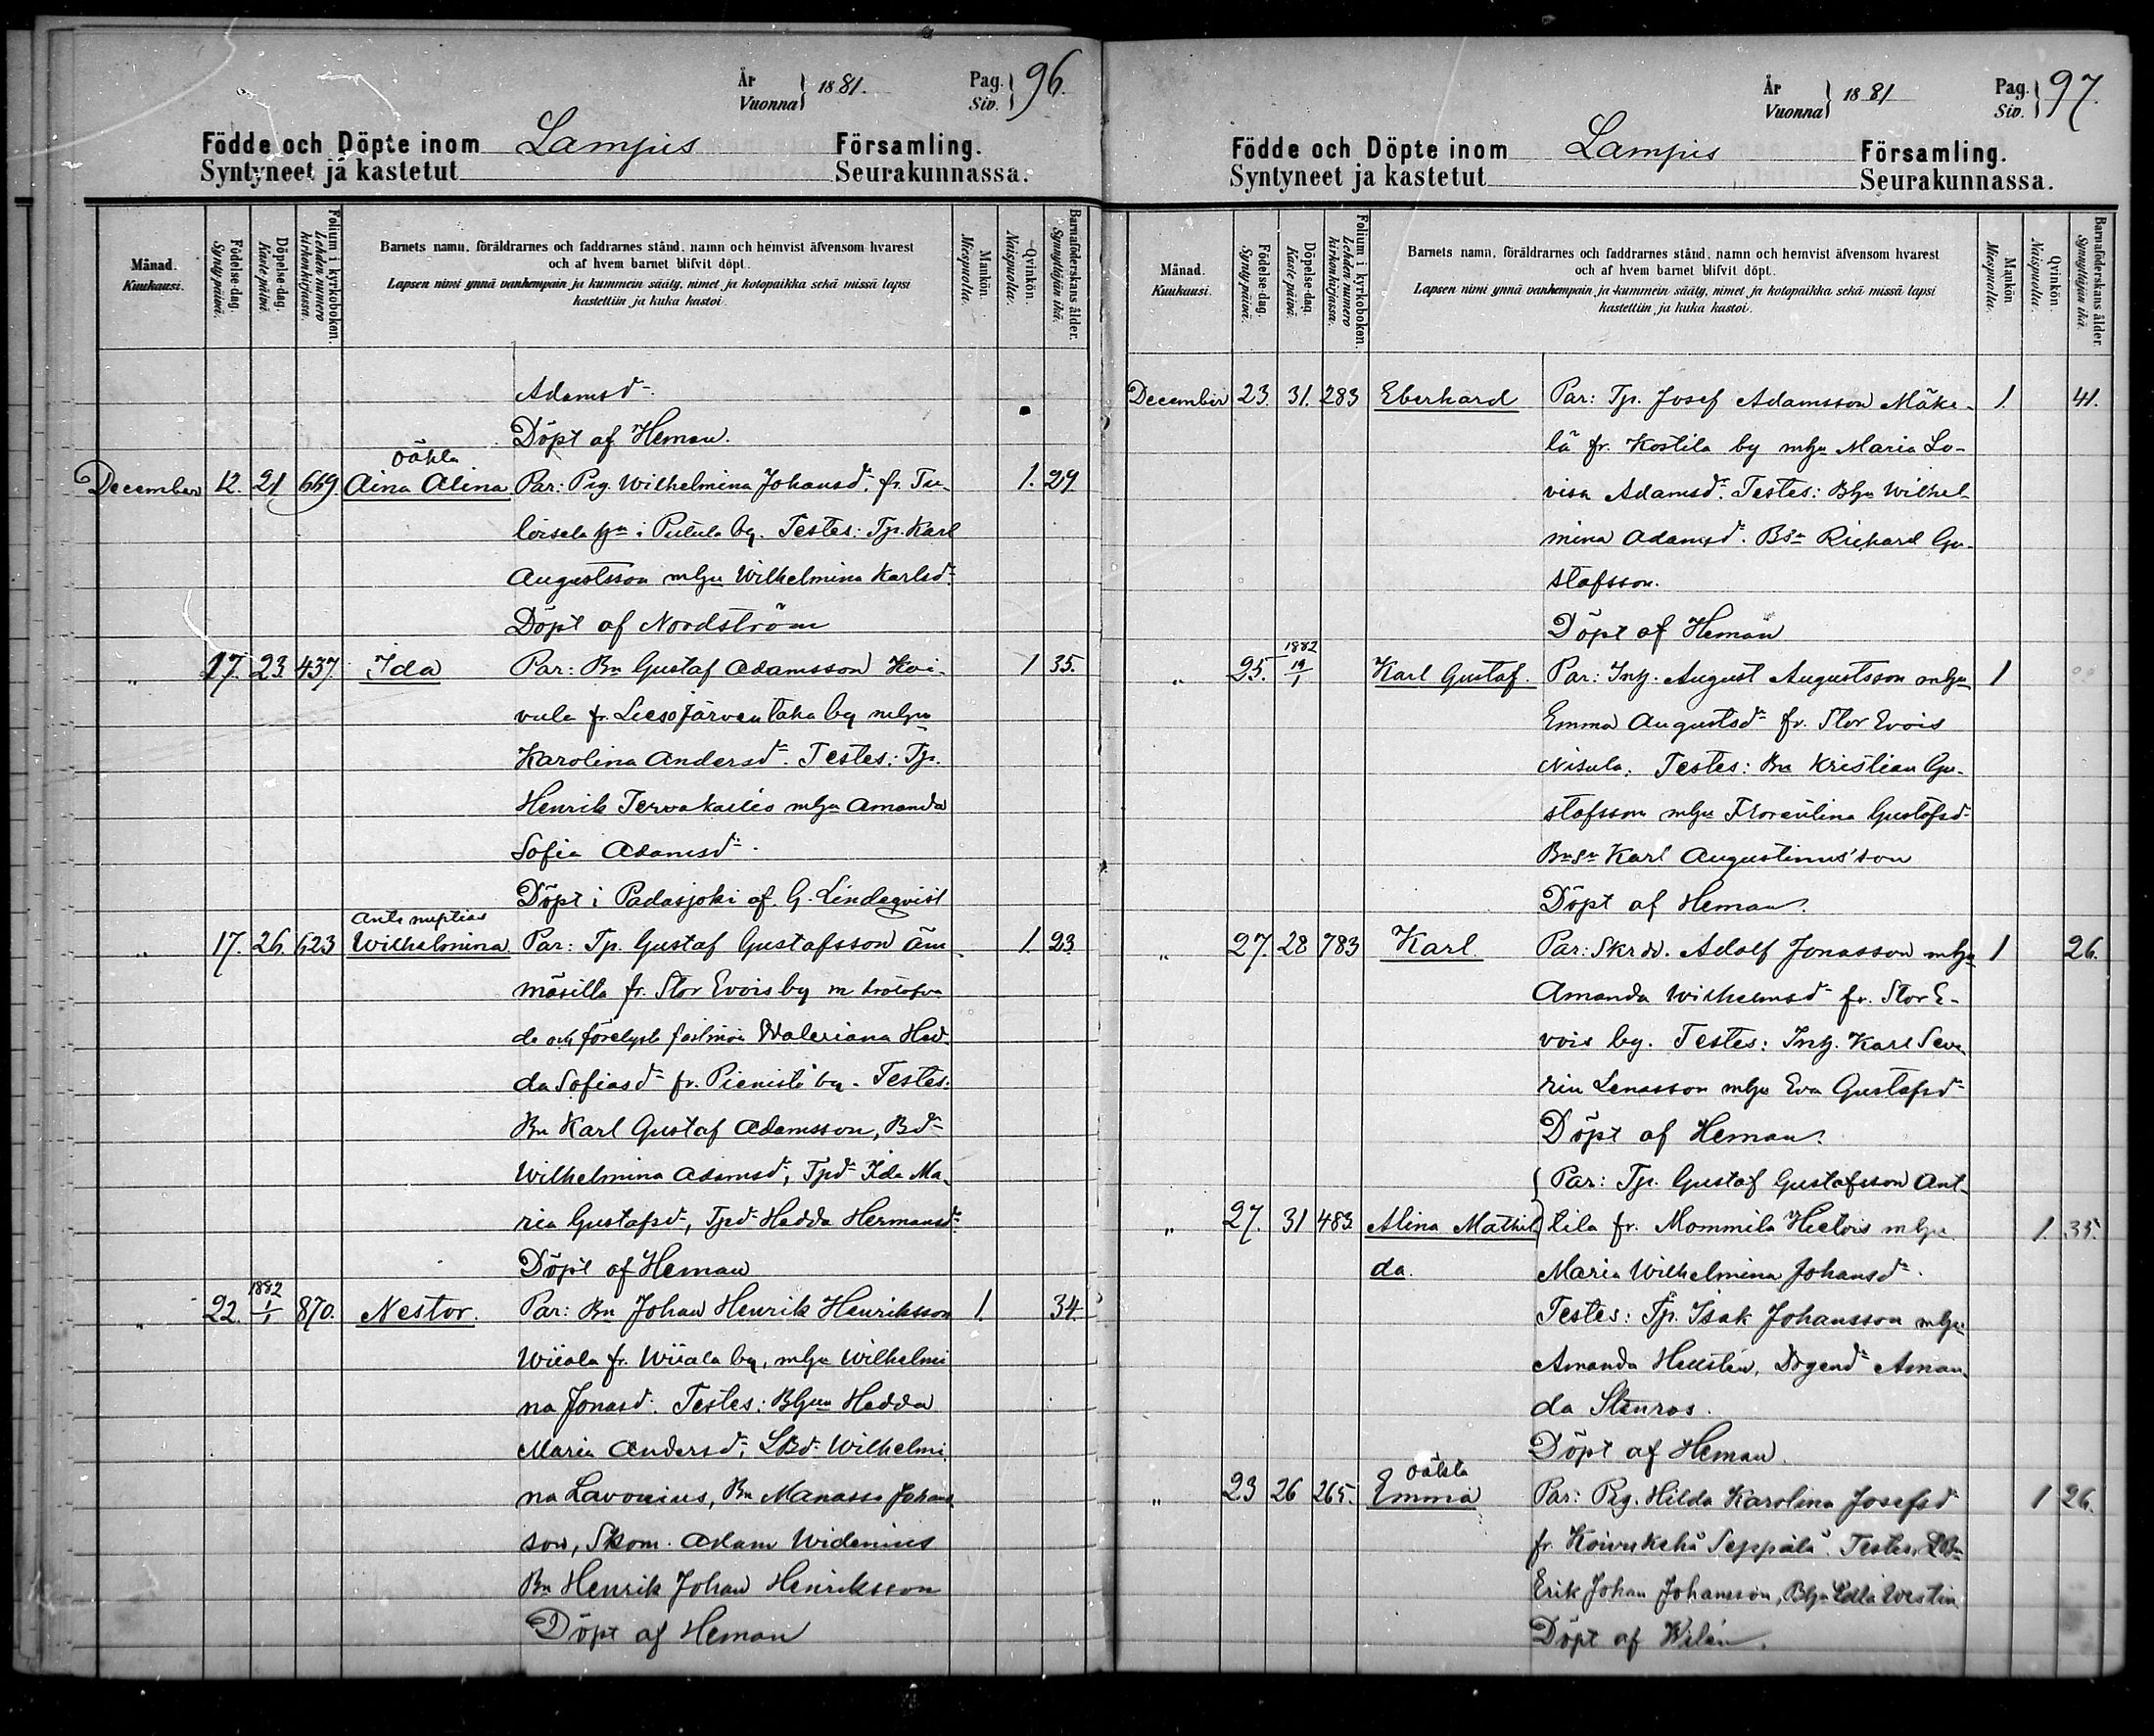 År
Vuonna } 1881.
Pag.
Siv. } 96.
Födde och Döpte inom Lampis Församling.
Syntyneet ja kastetut Seurakunnassa.
Månad.
Kuukausi.
Födelse-dag.
Syntypäivä.
Döpelse-dag.
Kastepäivä.
Folium i kyrkoboken.
Lehden numero
kirkonkirjassa.
Barnets namn, föräldrarnes och faddrarnes stånd, namn och hemvist äfvensom hvarest
och af hvem barnet blifvit döpt.
Lapsen nimi ynnä vanhempain ja kummein sääty, nimet ja kotopaikka sekä missä lapsi
kastettiin ja kuka kastoi.
Mankön.
Miespuolia.
Qvinkön.
Naispuolia.
Barnaföderskans ålder.
Synnyttäjän ikä.
Adamsdr
Döpt af Heman.
oäkta
December 12. 21 669 Aina Alina Par: Pig. Wilhelmina Johansdr. fr. Tu- 1. 29
loisela i Putula by. Testes: Tp. Karl
Augustsson mhu Wilhelmina Karlsdr
Döpt af Nordström
" 17. 23. 437. Ida Par: Bn Gustaf Adamsson Koi- 1 35.
vula fr. Liesojärventaka by mhu
Karolina Andersdr. Testes: Tp.
Henrik mhu Amanda
Sofia Adamsdr.
Döpt i Padasjoki af G. Lindeqvist
Ante nuptias
" 17. 26. 623 Wilhelmina Par: Tp. Gustaf Gustafsson Äm- 1. 23
mäsilla fr. Stor Evois by m trolofva
de och förelyste fästmön Waleriana Hed-
da Sofiasdr fr. Pienistö by. Testes.
Bn Karl Gustaf Adamsson, Bdr
Wilhelmina Adamsdr, Tpdr Ida Ma-
ria Gustafsdr, Tpdr Hedda Hermansdr
Döpt af Heman
1882
" 22. 1/1 870. Nestor. Par: Bn Johan Henrik Henriksson 1. 34.
Wiiala fr. Wiiala by, mhu Wilhelmi
na Jonasdr. Testes: Bhu Hedda
Maria Andersdr, LBdr Wilhelmi
na Lavonius, Bn Manasse Johans
son, Skom. Adam Widenius
Bn Henrik Johan Henriksson
Döpt af Heman
År
Vuonna } 1881
Pag.
Siv. } 97.
Födde och Döpte inom Lampis Församling.
Syntyneet ja kastetut Seurakunnassa.
Månad.
Kuukausi.
Födelse-dag.
Syntypäivä.
Döpelse-dag.
Kastepäivä.
Folium i kyrkoboken.
Lehden numero
kirkonkirjassa.
Barnets namn, föräldrarnes och faddrarnes stånd, namn och hemvist äfvensom hvarest
och af hvem barnet blifvit döpt.
Lapsen nimi ynnä vanhempain ja kummein sääty, nimet ja kotopaikka sekä missä lapsi
kastettiin ja kuka kastoi.
Mankön
Miespuolia.
Qvinkön.
Naispuolia.
Barnaföderskans ålder.
Synnyttäjän ikä.
December 23. 31. 283 Eberhard Par: Tp. Josef Adamsson Mäke- 1. 41.
lä fr. Kostila by mhu Maria Lo-
visa Adamsdr. Testes: Bhu Wilhel-
mina Adamsdr. Bsn Richard Gu-
stafsson.
Döpt af Heman
1882
" 25. 19/1 Karl Gustaf. Par: Inh. August Augustsson mhu 1
Emma Augustsdr fr. Stor Evois
Nisula. Testes: Bn Kristian Gu-
stafsson mhu Florentina Gustafsdr
Bnsn Karl Augustinusson
Döpt af Heman.
" 27. 28 783 Karl. Par: Skrdd. Adolf Jonasson mhu 1 26.
Amanda Wilhelmsdr fr. Stor E-
vois by. Testes: Inh. Karl Seve
rin Lenasson mhu Eva Gustafsdr
Döpt af Heman.
Par: Tp. Gustaf Gustafsson Ant-
" 27. 31 483 Alina Mathil tila fr. Mommila Hietois mhu 1. 35.
da. Maria Wilhelmina Johansdr.
Testes: Tp. Isak Johansson mhu
Amanda Hellstén, Drgendr Aman-
da Stenros.
Döpt af Heman.
oäkta
" 23 26 265. Emma Par: Pig. Hilda Karolina Josefsdr 1 26.
fr. Koivukehä Seppälä. Testes: LBn
Erik Johan Johansson, Bhu Edla Westin
Döpt af Wilén.